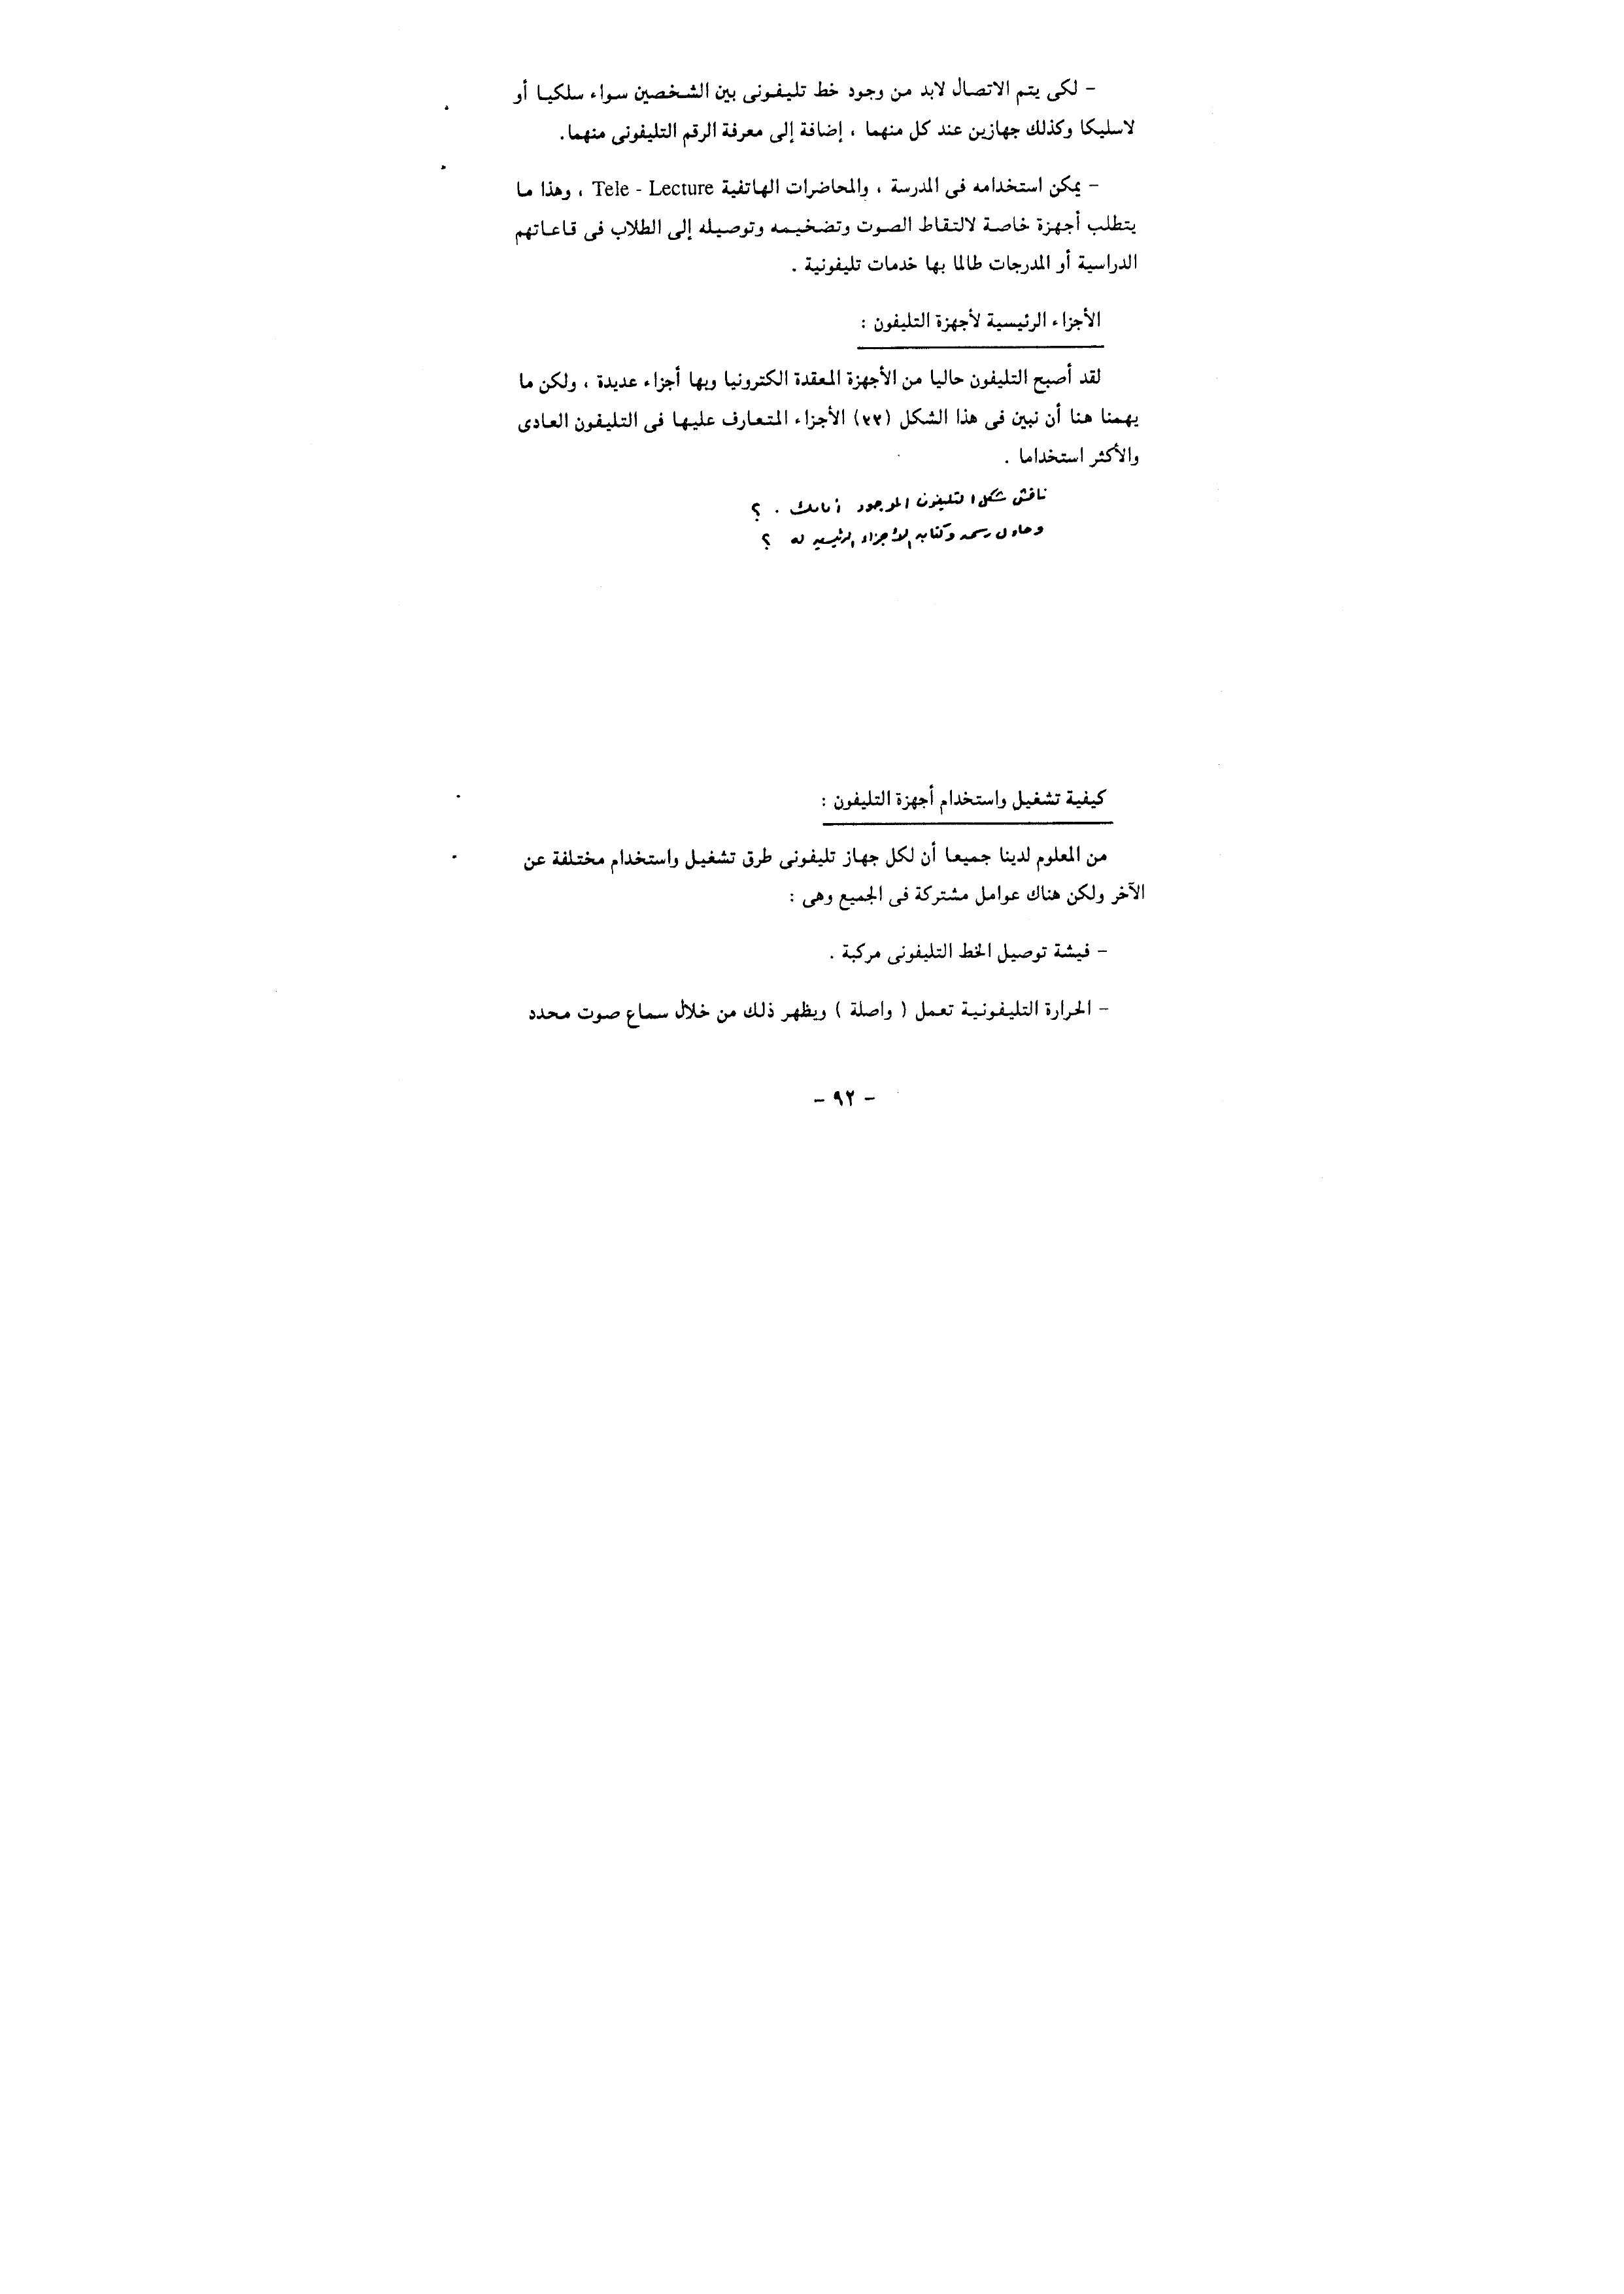 - لكى يتم الاتصال لابد من وجود خط تليفونى بين الشخصين سواء سلكيا أو
لاسليكا وكذلك جهازين عند كل منهما ، إضافة إلى معرفة الرقم التليفونى منهما.
- يمكن استخدامه فى المدرسة ، والمحاضرات الهاتفية Tele - Lecture ، وهذا ما
يتطلب أجهزة خاصة لالتقاط الصوت وتضخيمه وتوصيله إلى الطلاب فى قاعاتهم
الدراسية أو المدرجات طالما بها خدمات تليفونية .
الأجزاء الرئيسية لأجهزة التليفون :
لقد أصبح التليفون حاليا من الأجهزة المعقدة الكترونيا وبها أجزاء عديدة ، ولكن ما
يهمنا هنا أن نبين فى هذا الشكل (٢٣) الأجزاء المتعارف عليها فى التليفون العادى
والأكثر استخداما .
ناقش شكل التليفون الموجود أمامك . ؟
وحاول رسمه وكتابه الأجزاء الرئيسيه له ؟
كيفية تشغيل واستخدام أجهزة التليفون :
من المعلوم لدينا جميعا أن لكل جهاز تليفونى طرق تشغيل واستخدام مختلفة عن
الآخر ولكن هناك عوامل مشتركة فى الجميع وهى :
- فيشة توصيل الخط التليفونى مركبة .
- الحرارة التليفونية تعمل ( واصلة ) ويظهر ذلك من خلال سماع صوت محدد
- ٩٢ -